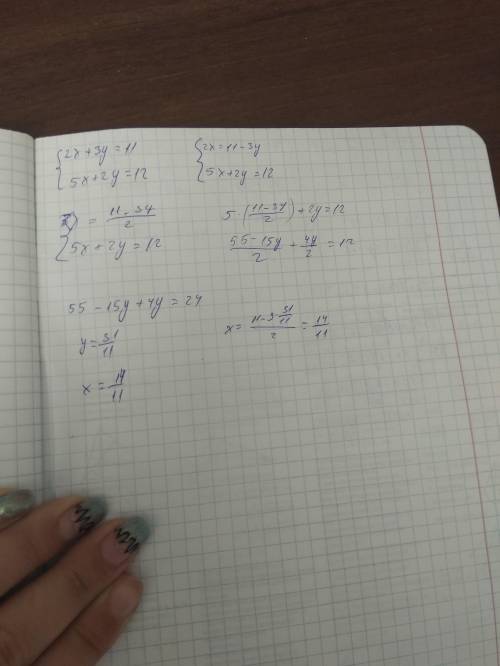 {2x+3y=11
5x+2y=12
{2x=11-3y
5x+2y=12
{x = (11-3y)/2
5x+2y=12
5·((11-3y)/2)+2y=12
(55-15y)/2 + 4y/2 = 12
55-15y+4y=24
y=31/11
x=14/11
x= (11-3·31/11)/2 = 14/11